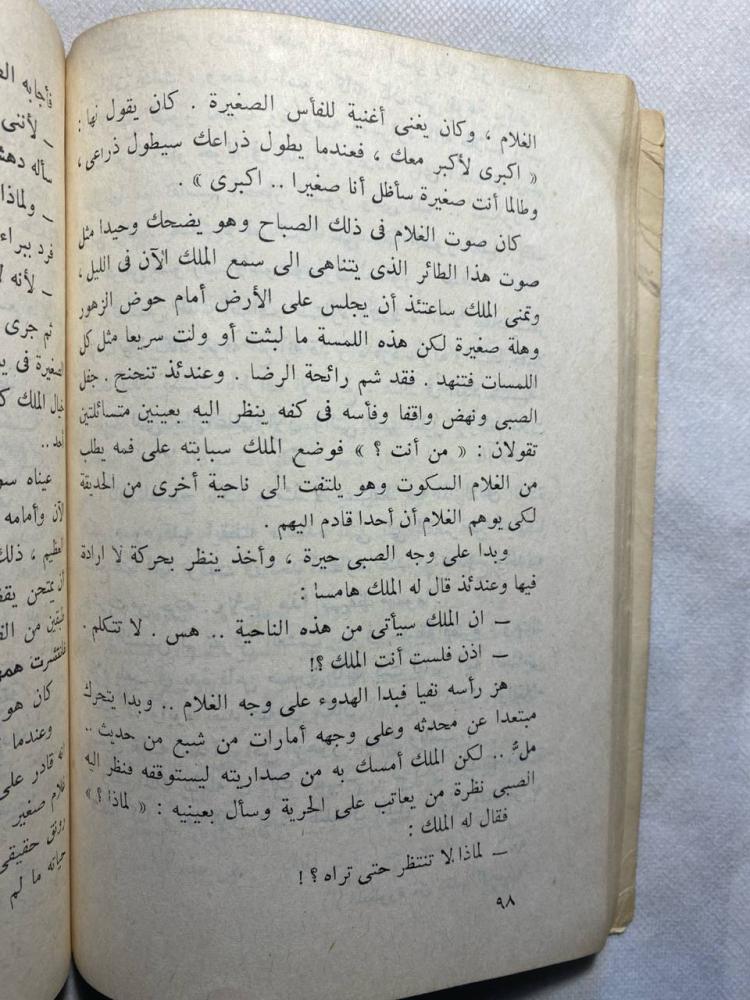 الغلام ، وكان يغنى أغنية للفأس الصغيرة . كان يقول لها :
« اكبرى لأكبر معك ، فعندما يطول ذراعك سيطول ذراعى ،
وطالما أنت صغيرة سأظل أنا صغيرا .. اكبرى » .
كان صوت الغلام فى ذلك الصباح وهو يضحك وحيدا مثل
صوت هذا الطائر الذى يتناهى الى سمع الملك الآن فى الليل ،
وتمنى الملك ساعتئذ أن يجلس على الأرض أمام حوض الزهور
وهلة صغيرة لكن هذه اللمسة ما لبثت أو ولت سريعا مثل كل
اللمسات فتنهد . فقد شم رائحة الرضا . وعندئذ تنحنح . جفل
الصبى ونهض واقفا وفأسه فى كفه ينظر اليه بعينين متسائلتين
تقولان : « من أنت ؟ » فوضع الملك سبابته على فمه يطلب
من الغلام السكوت وهو يلتفت الى ناحية أخرى من الحديقة
لكى يوهم الغلام أن أحدا قادم اليهم .
وبدا على وجه الصبى حيرة ، وأخذ ينظر بحركة لا ارادة
فيها وعندئذ قال له الملك هامسا :
— ان الملك سيأتى من هذه الناحية .. هس . لا تتكلم .
— اذن فلست أنت الملك ؟!
هز رأسه نفيا فبدا الهدوء على وجه الغلام .. وبدا يتحرك
مبتعدا عن محدثه وعلى وجهه أمارات من شبع من حديث ..
ملٌ .. لكن الملك أمسك به من صداريته ليستوقفه فنظر اليه
الصبى نظرة من يعاتب على الحرية وسأل بعينيه : « لماذا ؟ »
فقال له الملك :
— لماذا لا تنتظر حتى تراه ؟ !
٩٨
فأجابه
— لأننى
سأله
— ولماذا
فرد
— لأنه
ثم جرى
الصغيرة فى
الملك
عيناه
وأمامه
ذلك
من
كان هو
وعندما
قادر على
صغير
حقيقى
ما لم